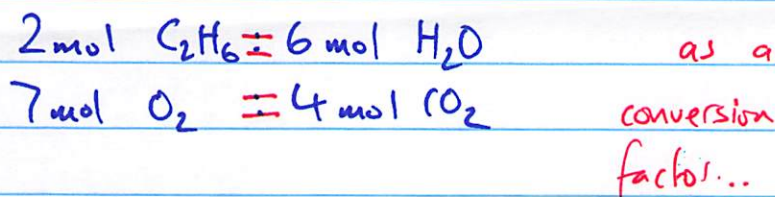 2 mol C₂H₆ = 6 mol H₂O as a
7 mol O₂ = 4 mol CO₂ conversion
factor...